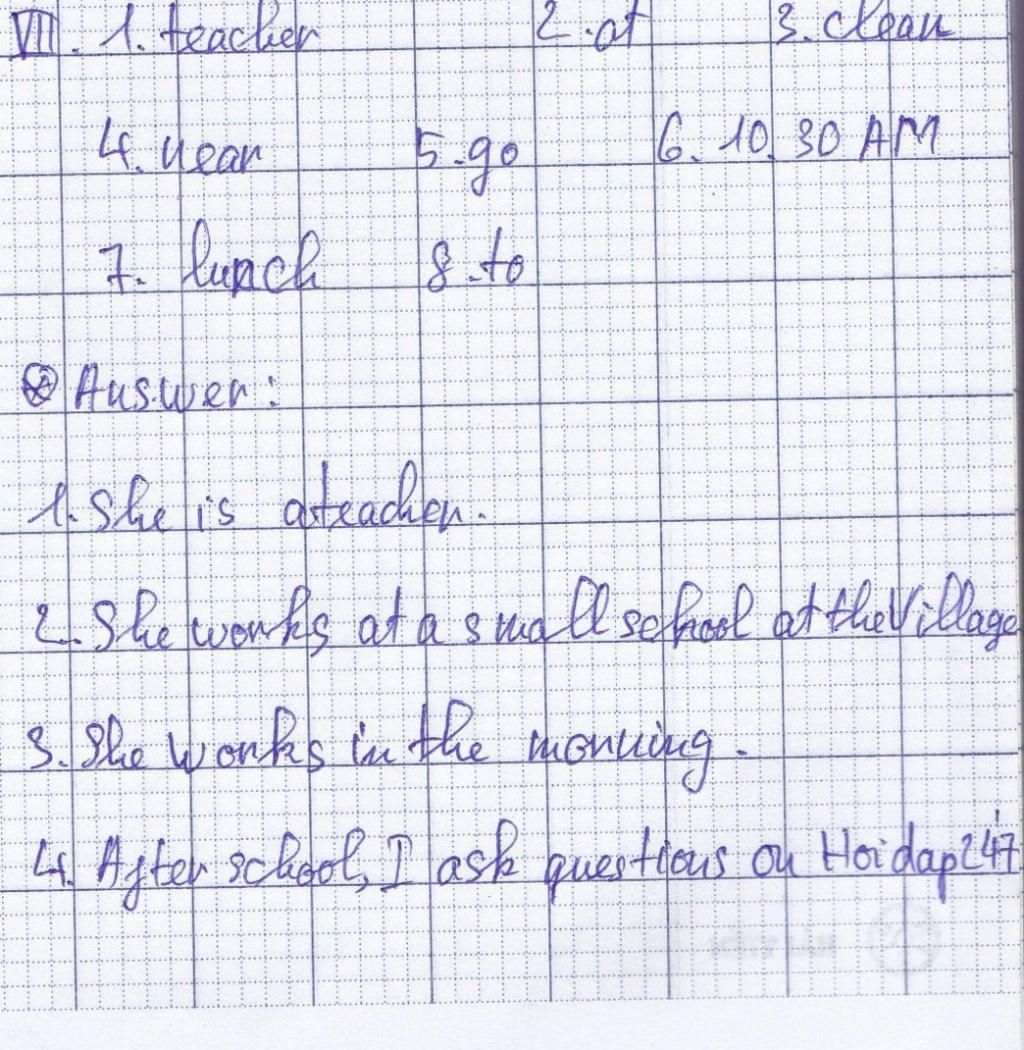 VII. 1. teacher 2. at 3. clean
4. near 5. go 6. 10.30 AM
7. lunch 8. to
Answer:
1. She is a teacher.
2. She works at a small school at the village
3. She works in the morning.
4. After school, I ask questions on Hoidap247